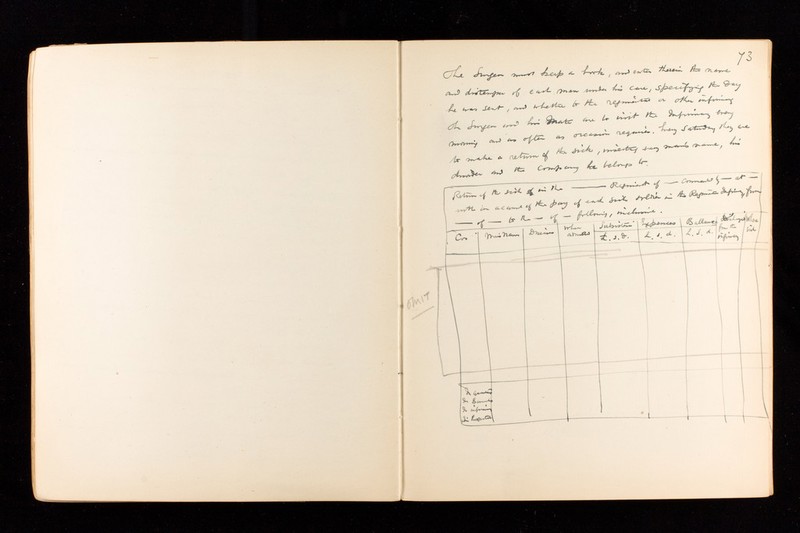 73
The Surgeon must keep a book, and enter therein the name
and distemper of each man under his care, specifying the Day
he was sent, and whether to the regimental or other infirmary
The Surgeon and his Mate are to visit the Infirmary every
morning and as often as occasion requires. Every Saturday they are
to make a return of the sick, inserting every man's name, his
disorder and the Company he belongs to.
Return of the sick in the — Regiment of — commanded by — at —
with an account of the pay of each sick soldier in the Regimental Infirmary from
— of — to the — of — following, inclusive.
Coy Men's Names Disorders When admitted Subsistence Expences Ballance from the infirmary Sick
£. s. d. £. s. d. £. s. d.
OMIT
In quarters
In Barracks
In infirmary
In Hospital